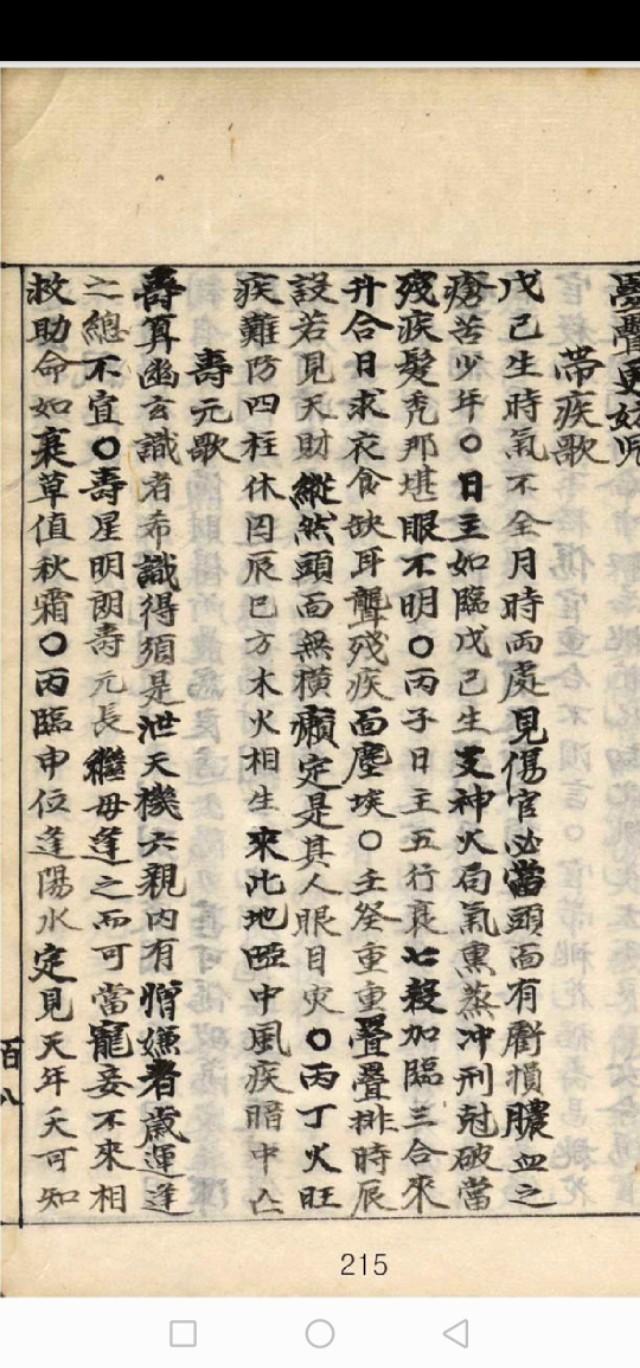 疊更妨児
帯疾歌
戊己生時氣不全月時両處見傷官必當頭面有虧損膿血之
瘡苦少年○日主如臨戊己生支神火局氣熏蒸冲刑尅破當
殘疾髮禿那堪眼不明○丙子日主五行衰七殺加臨三合來
升合日求衣食缺耳聾残疾面塵埃○壬癸重重疊疊排時辰
設若見天財縱然頭面無横癩定是其人眼目灾○丙丁火旺
疾難防四柱休囚辰巳方木火相生來此地瘂中風疾暗中亡
壽元歌
壽算幽玄識者希識得須是泄天機六親内有憎嫌者歳運逢
之總不宜○壽星明朗壽元長繼母逢之而可當寵妾不來相
救助命如衰草值秋霜○丙臨申位逢陽水定見天年夭可知
百八
215